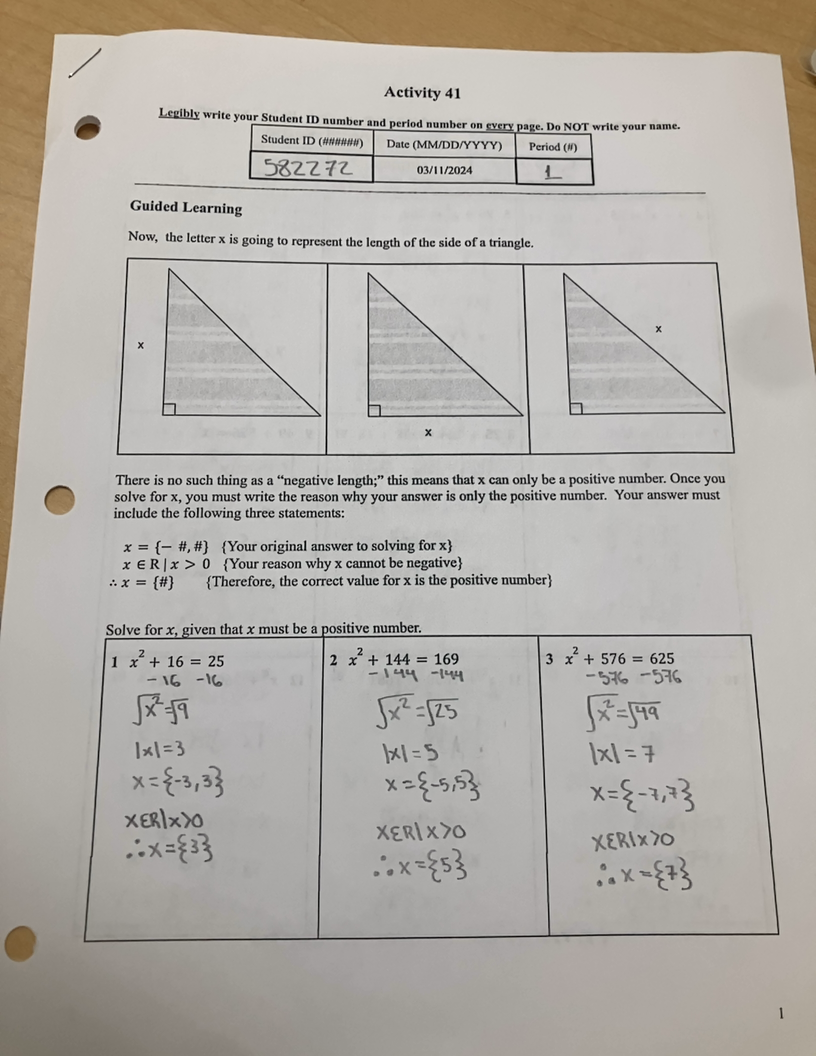 Activity 41
Legibly write your Student ID number and period number on every page. Do NOT write your name.
Student ID (######) Date (MM/DD/YYYY) Period (#)
582272 03/11/2024 1
Guided Learning
Now, the letter x is going to represent the length of the side of a triangle.
x
x
x
There is no such thing as a “negative length;” this means that x can only be a positive number. Once you
solve for x, you must write the reason why your answer is only the positive number. Your answer must
include the following three statements:
x = {− #, #} {Your original answer to solving for x}
x ∈ R | x > 0 {Your reason why x cannot be negative}
∴ x = {#} {Therefore, the correct value for x is the positive number}
Solve for x, given that x must be a positive number.
1 x² + 16 = 25
-16 -16
√x²=√9
|x|=3
x={-3,3}
x∈R|x>0
∴x={3}
2 x² + 144 = 169
-144 -144
√x²=√25
|x|=5
x={-5,5}
x∈R|x>0
∴x={5}
3 x² + 576 = 625
-576 -576
√x²=√49
|x|=7
x={-7,7}
x∈R|x>0
∴x={7}
1